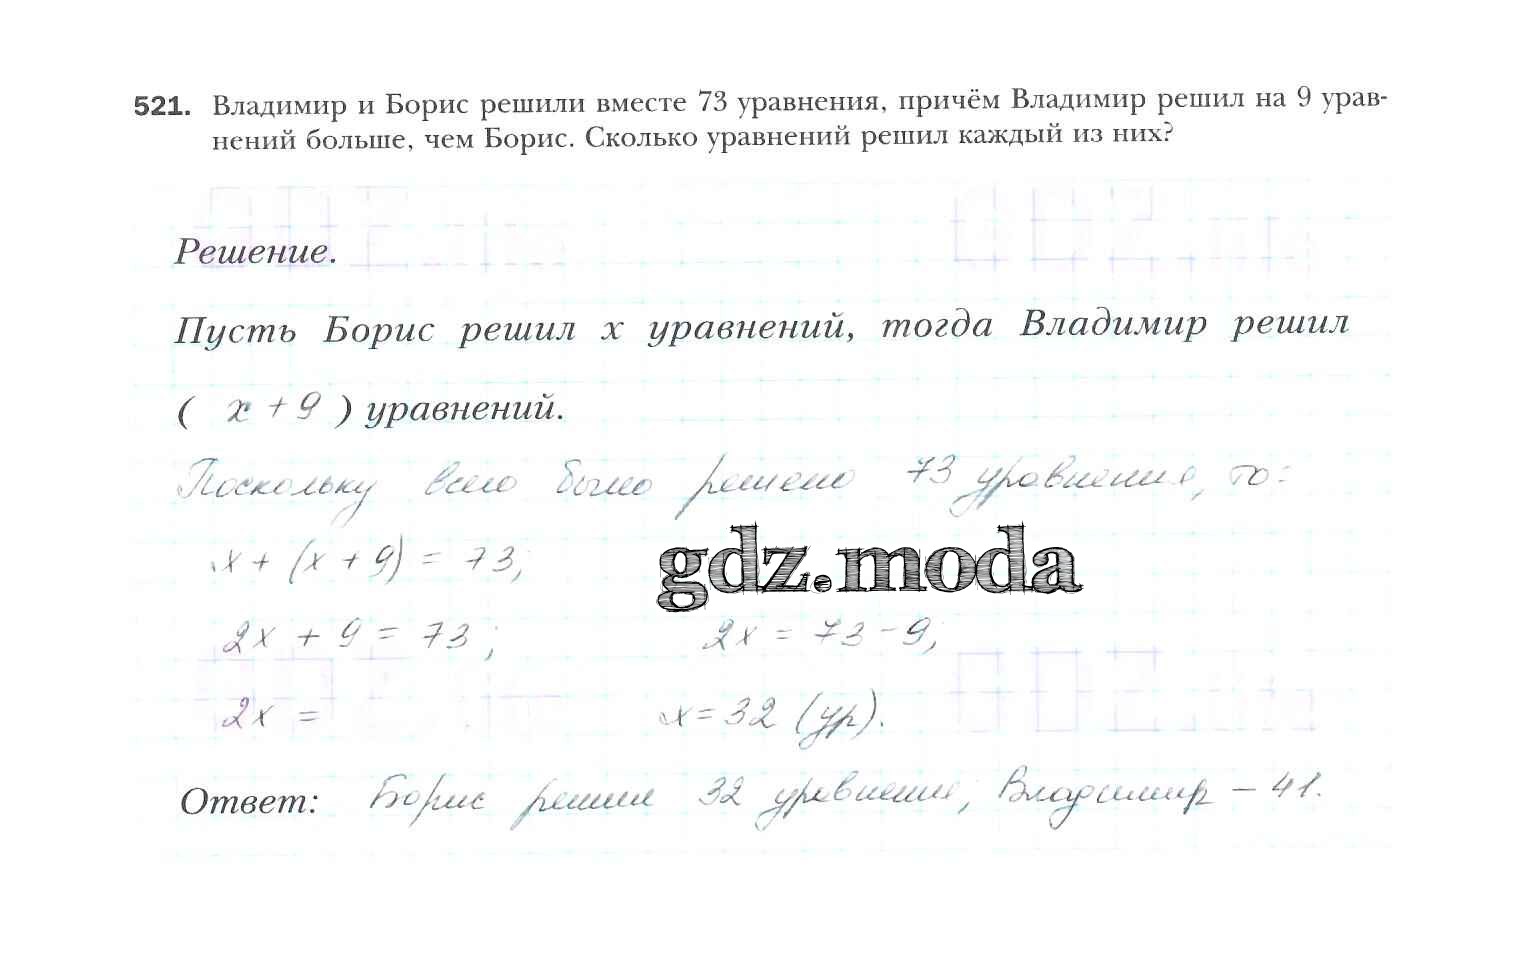 521. Владимир и Борис решили вместе 73 уравнения, причём Владимир решил на 9 урав-
нений больше, чем Борис. Сколько уравнений решил каждый из них?
Решение.
Пусть Борис решил x уравнений, тогда Владимир решил
( x + 9 ) уравнений.
Поскольку всего было решено 73 уравнения, то:
x + (x + 9) = 73;
gdz.moda
2x + 9 = 73; 2x = 73 - 9;
2x = x = 32 (ур).
Ответ: Борис решил 32 уравнения, Владимир – 41.